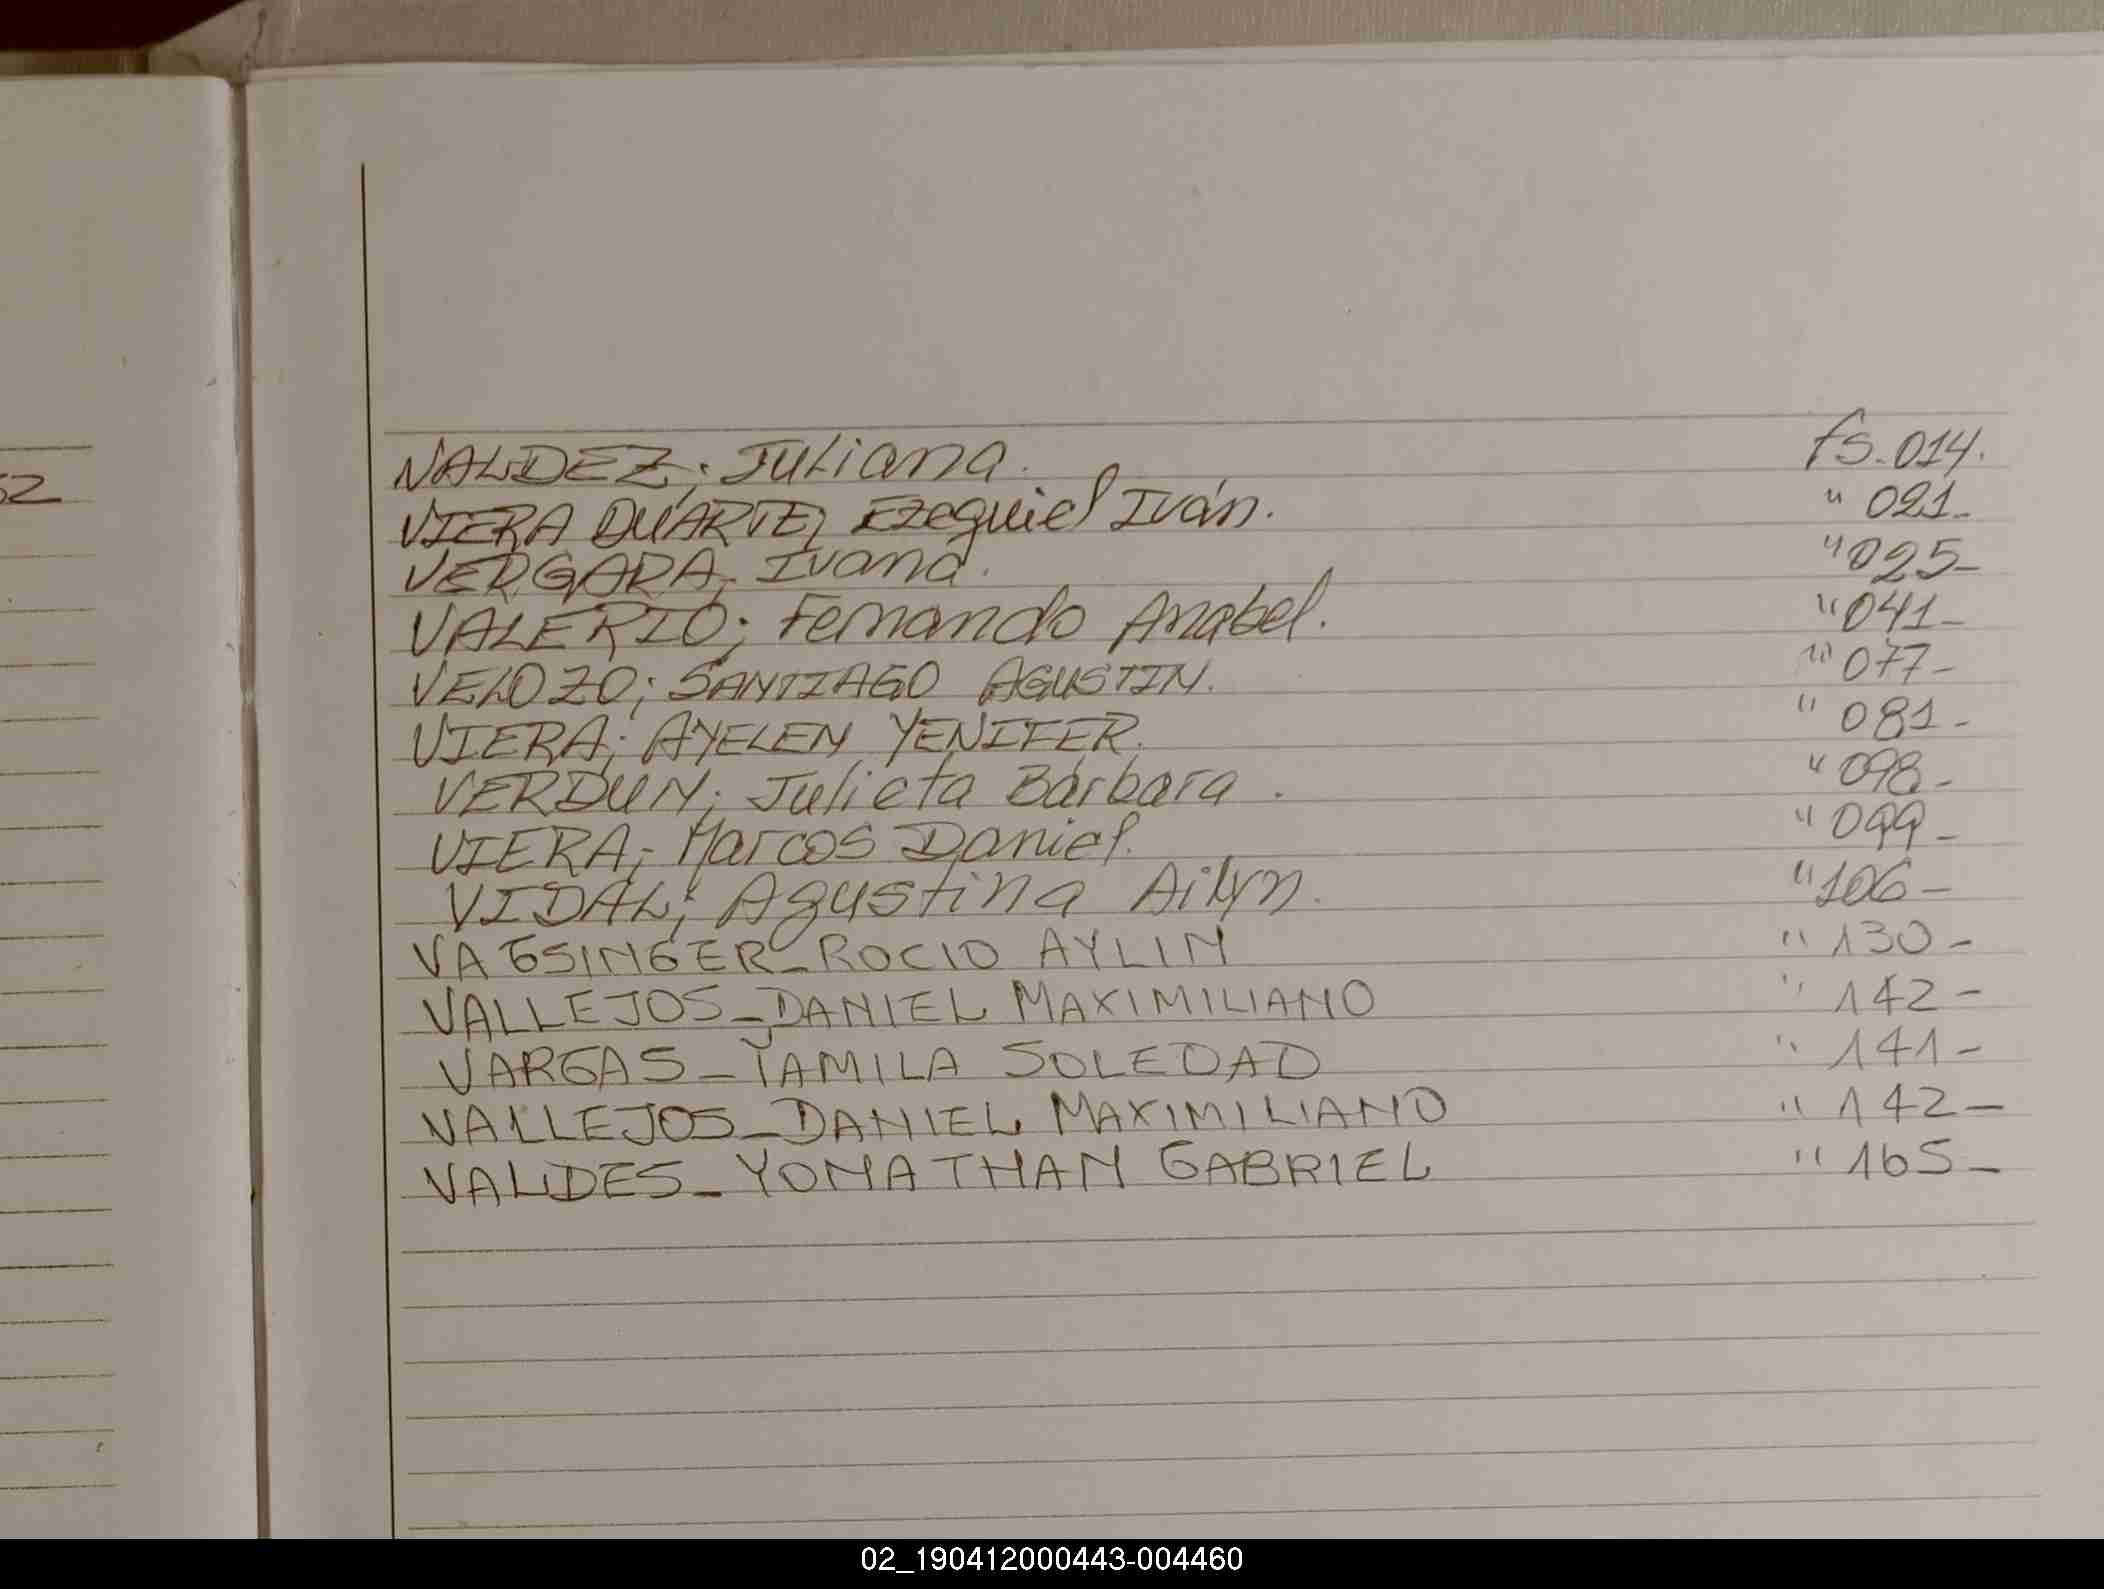 52
VALDEZ; Juliana. fs. 014.
VIERA DUARTE, Ezequiel Iván. " 021-
VERGARA, Ivana. " 025-
VALERIO; Fernando Anabel. " 041-
VELOZO; SANTIAGO AGUSTIN. " 077-
VIERA; AYELEN YENIFER. " 081-
VERDUN; Julieta Bárbara. " 098-
VIERA; Marcos Daniel. " 099-
VIDAL; Agustina Ailyn. " 106-
VAGSINGER-ROCIO AYLIN " 130-
VALLEJOS-DANIEL MAXIMILIANO " 142-
VARGAS-YAMILA SOLEDAD " 141-
VALLEJOS-DANIEL MAXIMILIANO " 142-
VALDES-YONATHAN GABRIEL " 165-
02_190412000443-004460